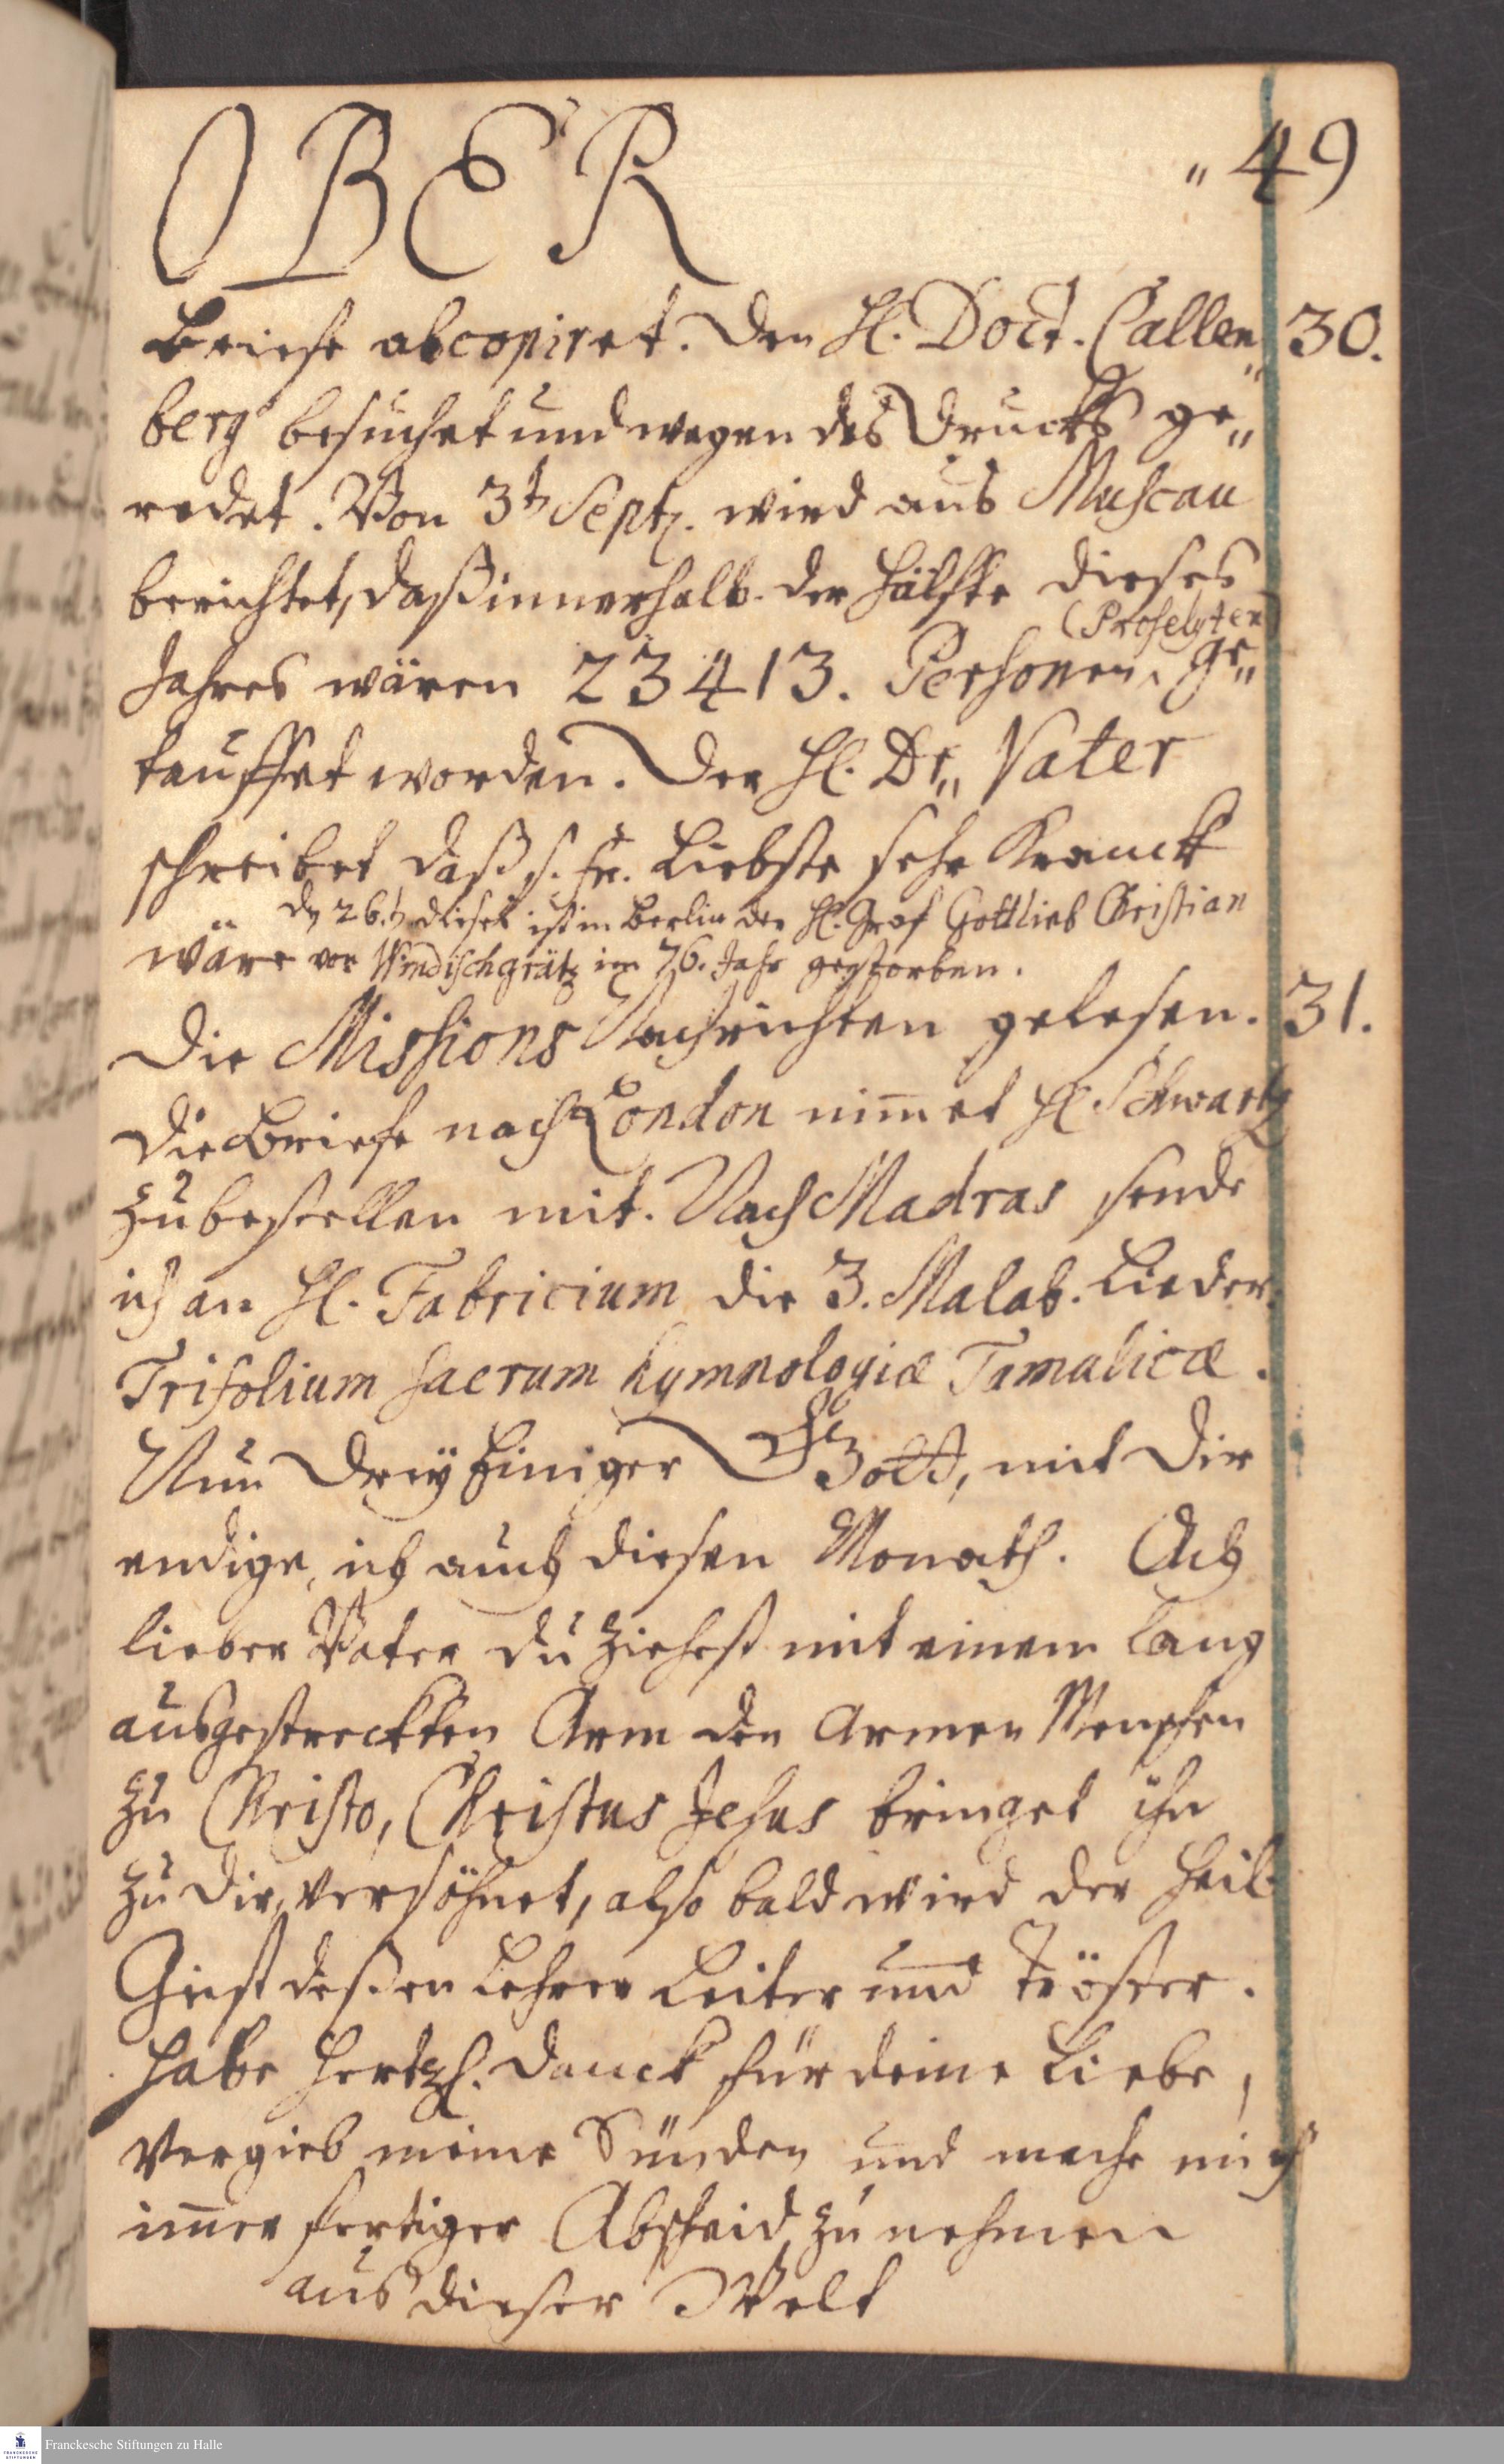 OBER „ 49
Briefe abcopiret. Den H. Doct. Callen„ 30.
berg besuchet und wegen des Drucks ge„
redet. Von 3t Sept. wird aus Muscau
berichtet, daß innerhalb der Hälfte dieses
(Proselyten)
Jahres wären 23413. Personen ge„
tauffet worden. Der H. Dr„ Vater
schreibet daß s. Fr. Liebste sehr Kranck
dn 26t dieses ist in Berlin der H. Graf Gottlieb Christian
wäre von Windischgrätz im 76. Jahr gestorben.
Die Missions Nachrichten gelesen. 31.
Die Briefe nach London nim̄et H. Schwartz
zu bestellen mit. Nach Madras sende
ich an H. Fabricium die 3. Malab. Lieder.
Trifolium sacrum hymnologiæ Tamulicæ.
Nun Dreÿ Einiger GOtt, mit Dir
endige ich auch diesen Monath. Ach
lieber Vater du ziehest mit einem lang
ausgestreckten Arm den armen Menschen
zu Christo, Christus Jesus bringet ihn
zu dir, versöhnet, also bald wird der Heil.
Geist deßen Lehrer Leiter und Tröster.
Habe Hertzl. Danck für deine Liebe,
vergieb meine Sünden und mache mich
im̄er fertiger Abscheid zu nehmen
aus dieser Welt
Franckesche Stiftungen zu Halle